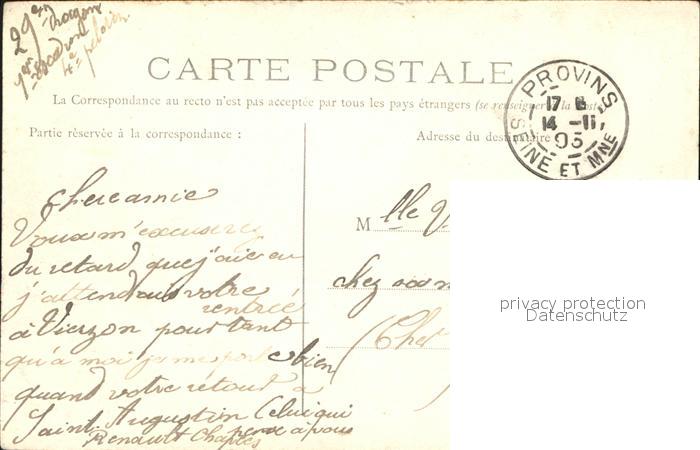 29e Dragons
1er Escadron
4e peloton
CARTE POSTALE
La Correspondance au recto n'est pas acceptée par tous les pays étrangers (se renseigner à la Poste)
Partie réservée à la correspondance :
Adresse du destinataire
PROVINS
17
14 -11
05
SEINE ET MNE
chere amie
Vous m'excuserez
du retard que j'aie eu
j'attendais votre
rentrée
à Vierzon pourtant
qu'à moi je me porte bien
quand votre retour à
Saint Augustin Celui qui
pense à vous
Renault Chaples
Mlle V
chez
(Cher
privacy protection
Datenschutz